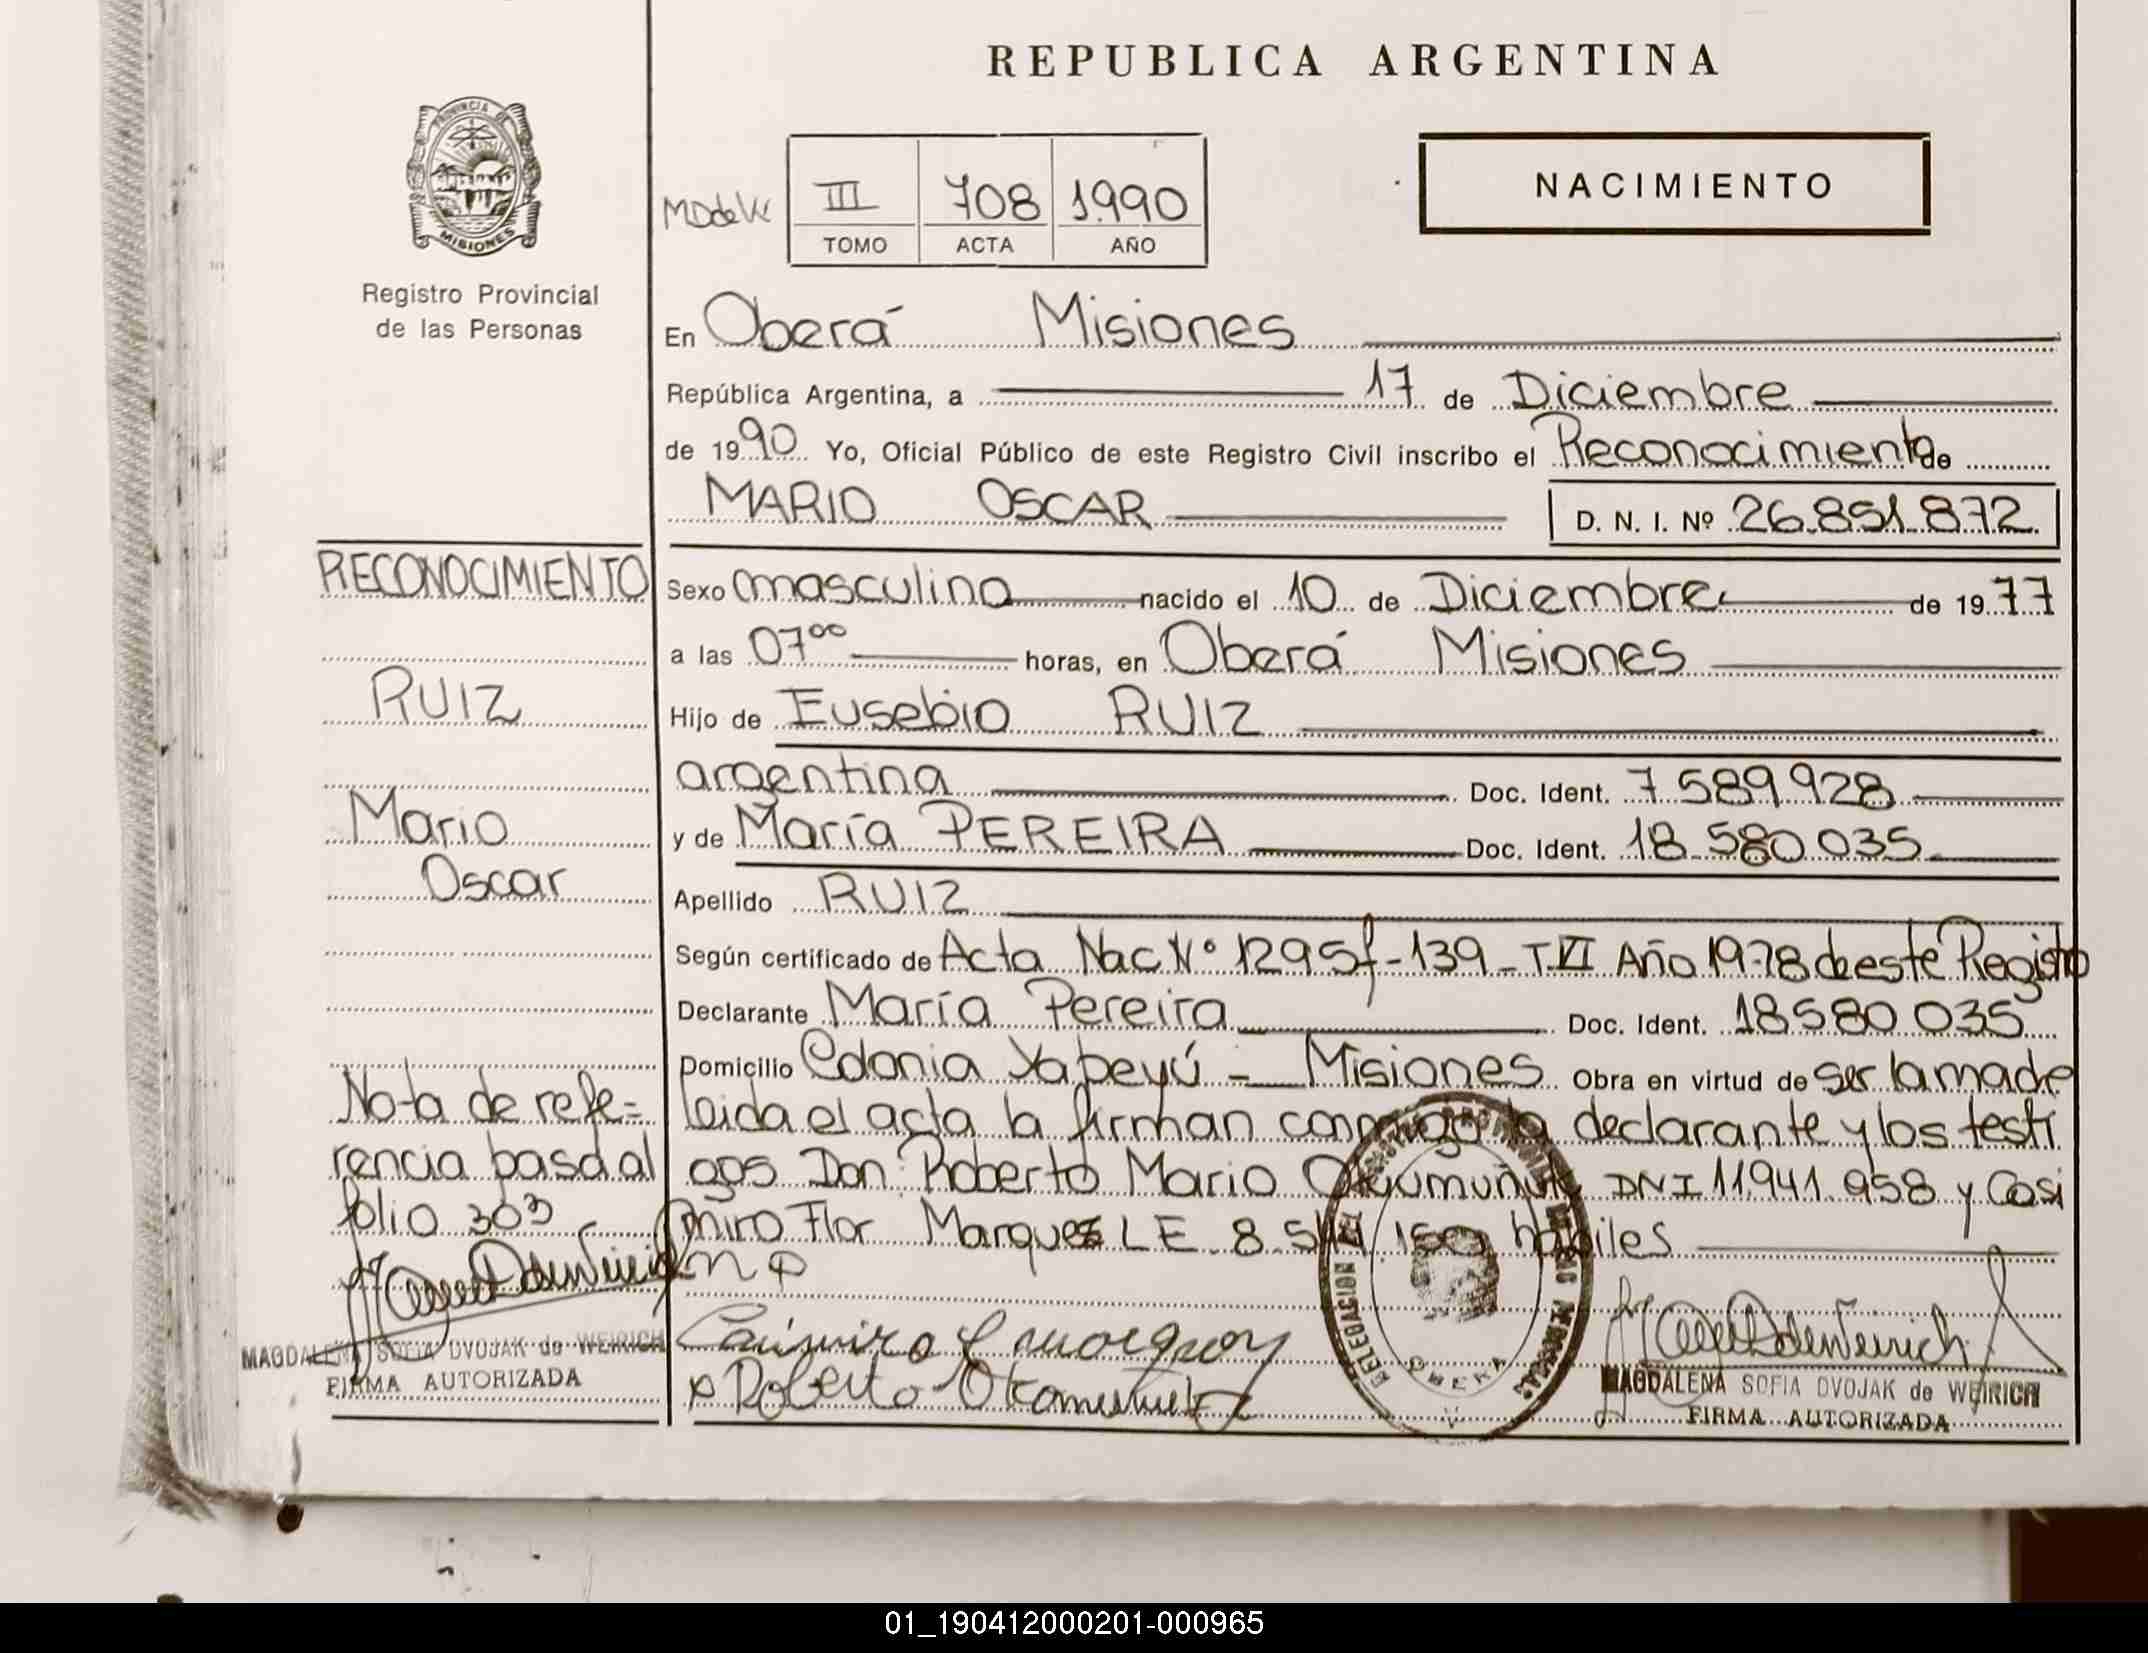 REPUBLICA ARGENTINA
PROVINCIA DE
MISIONES
Registro Provincial
de las Personas
III 708 1990
TOMO ACTA AÑO
NACIMIENTO
En Oberá Misiones
República Argentina, a 17 de Diciembre
de 1990 Yo, Oficial Público de este Registro Civil inscribo el Reconocimiento de
MARIO OSCAR D. N. I. Nº 26.851.872
RECONOCIMIENTO
RUIZ
Mario
Oscar
Sexo masculino nacido el 10 de Diciembre de 1977
a las 07⁰⁰ horas, en Oberá Misiones
Hijo de Eusebio RUIZ
argentina Doc. Ident. 7.589.928
y de María PEREIRA Doc. Ident. 18.580.035
Apellido RUIZ
Según certificado de Acta Nac Nº 1295 f-139 - T VI Año 1978 de este Registro
Declarante María Pereira Doc. Ident. 18580035
Domicilio Colonia Yapeyú - Misiones Obra en virtud de ser la madre
leida el acta la firman conmigo la declarante y los testi
gos Don: Roberto Mario DNI 11.941.958 y Casi
miro Flor Marquez LE 8.5 hábiles
Nota de refe=
rencia pasa al
folio 303
MAGDALENA SOFIA DVOJAK de WEIRICH
FIRMA AUTORIZADA
Casimiro
Roberto
DELEGACION
OBERA
MAGDALENA SOFIA DVOJAK de WEIRICH
FIRMA AUTORIZADA
01_190412000201-000965